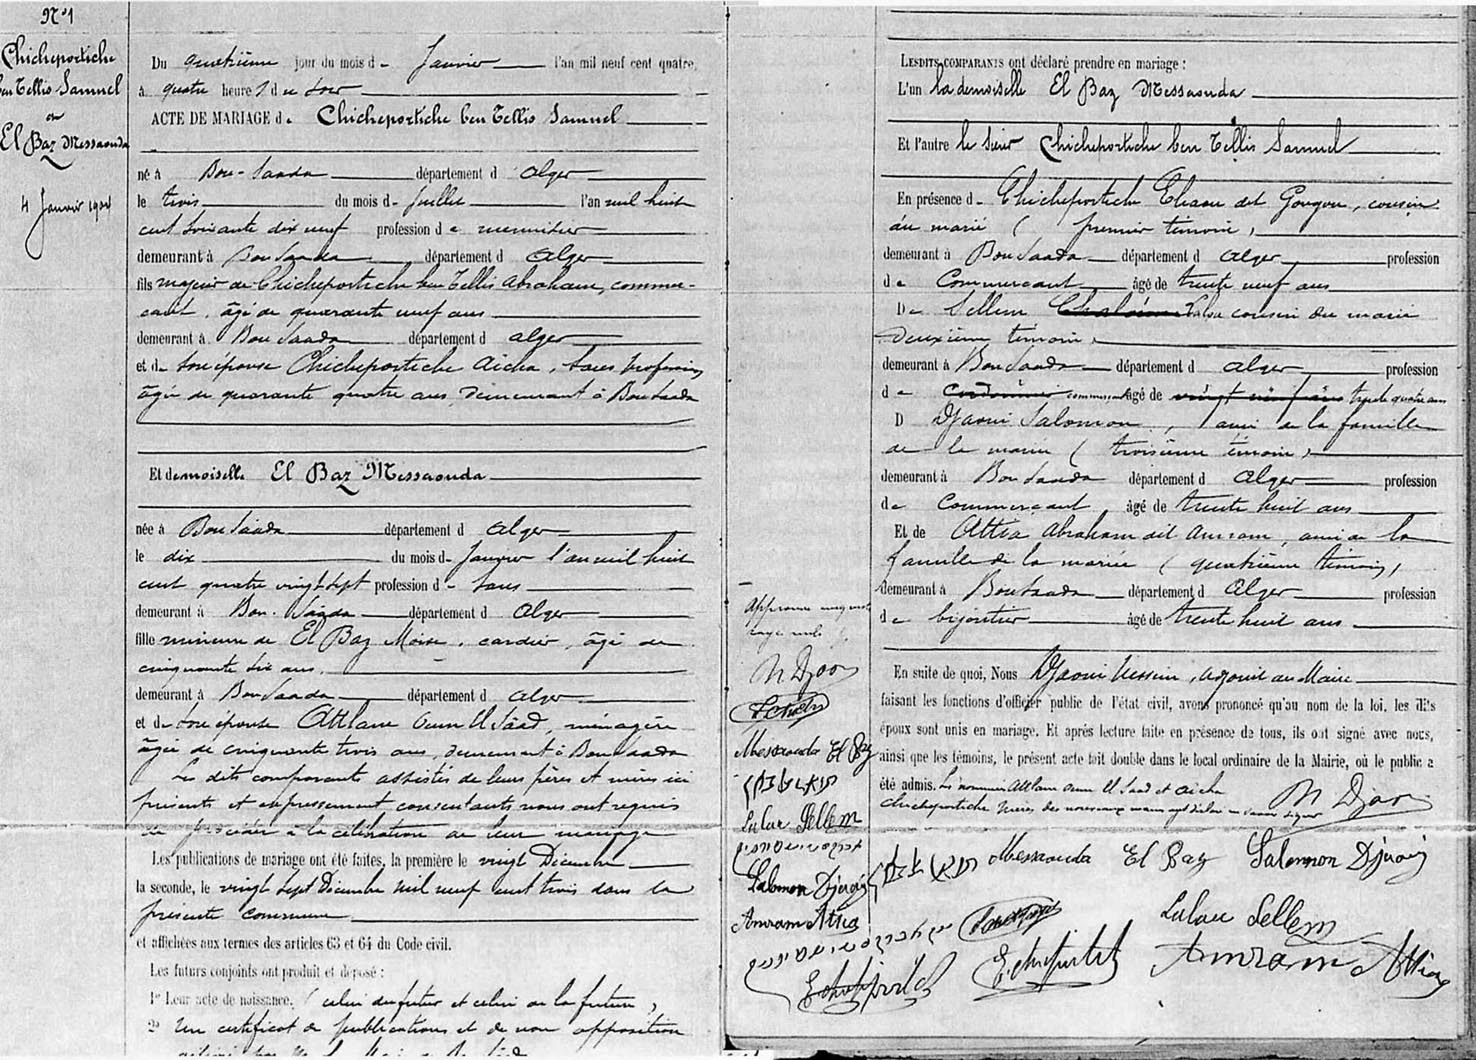 N° 1
Chicheportiche
ben Tellis Samuel
El Baz Messaouda
4 Janvier 1904
Du quatrième jour du mois de Janvier l'an mil neuf cent quatre,
à quatre heures du soir
ACTE DE MARIAGE de Chicheportiche ben Tellis Samuel
né à Bou-Saada département d Alger
le trois du mois de Juillet l'an mil huit
cent soixante dix neuf profession de menuisier
demeurant à Bou Saada département d Alger
fils majeur de Chicheportiche ben Tellis Abraham, commer-
cant, âgé de quarante neuf ans
demeurant à Bou Saada département d Alger
et de son épouse Chicheportiche Aicha, sans profession
âgée de quarante quatre ans, demeurant à Bou Saada
Et demoiselle El Baz Messaouda
née à Bou Saada département d Alger
le dix du mois de Janvier l'an mil huit
cent quatre vingt sept profession d - sans
demeurant à Bou-Saada département d Alger
fille mineure de El Baz Moïse, cardier, âgé de
cinquante six ans.
demeurant à Bou Saada département d Alger
et de son épouse Attlane Oum El Säad, ménagère
âgée de cinquante trois ans, demeurant à Bou Saada
Les dits comparants assistés de leurs pères et mères ici
présents et expressement consentants nous ont requis
de procéder à la célébration de leur mariage
Les publications de mariage ont été faites, la première le vingt Décembre
la seconde, le vingt sept Décembre mil neuf cent trois dans la
présente commune
et affichées aux termes des articles 63 et 64 du Code civil.
Les futurs conjoints ont produit et déposé :
1° Leur acte de naissance. (celui du futur et celui de la future)
2° Un certificat de publications et de non opposition
LESDITS COMPARANTS ont déclaré prendre en mariage :
L'un la demoiselle El Baz Messaouda
Et l'autre le sieur Chicheportiche ben Tellis Samuel
En présence de Chicheportiche dit Gougou, cousin
du marié (premier témoin)
demeurant à Bou Saada département d Alger profession
de Commercant âgé de trente neuf ans
De Sellem cousin du marié
deuxième témoin
demeurant à Bou Saada département d Alger profession
de commercant âgé de trente quatre ans
D Djaoui Salomon, ami de la famille
de la mariée (troisième témoin)
demeurant à Bou Saada département d Alger profession
de Commercant âgé de trente huit ans
Et de Attia Abraham dit Amram, ami de la
famille de la mariée (quatrième témoin)
demeurant à Bou Saada département d Alger profession
de bijoutier âgé de trente huit ans
En suite de quoi, Nous Djaoui, adjoint au Maire
faisant les fonctions d'officier public de l'état civil, avons prononcé qu'au nom de la loi, les dits
époux sont unis en mariage. Et après lecture faite en présence de tous, ils ont signé avec nous,
ainsi que les témoins, le présent acte fait double dans le local ordinaire de la Mairie, où le public a
été admis. Les nommées Attlane Oum El Saad et Aicha
Chicheportiche
Messaouda El Baz
Salomon Djaoui
Lalou Sellem
Amram Attia
Messaouda El Baz
Lalou Sellem
Salomon Djaoui
Amram Attia